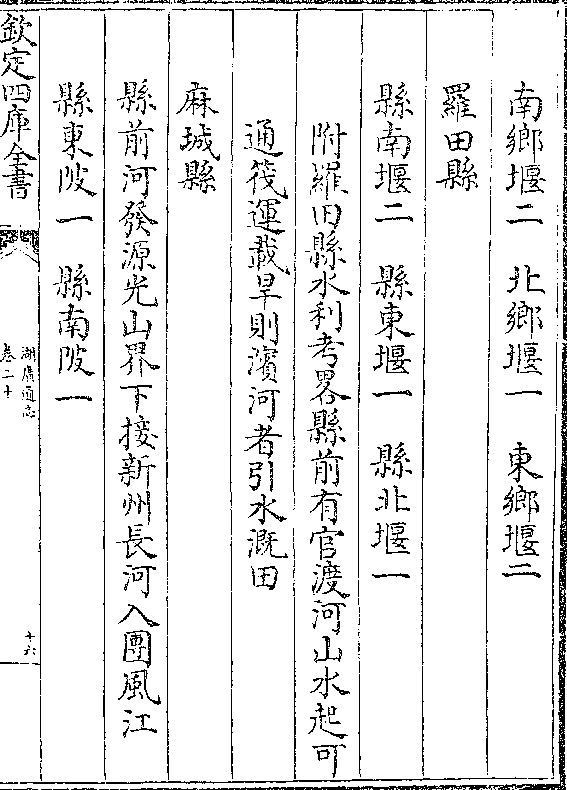 南鄉堰二　北鄉堰一　東鄉堰二
羅田縣
縣南堰二　縣東堰一　縣北堰一
附羅田縣水利考畧縣前有官渡河山水起可
通筏運載旱則濱河者引水溉田
麻城縣
縣前河發源光山界下接新州長河入團風江
縣東陂一　縣南陂一
欽定四庫全書
湖廣通志
卷二十
十六